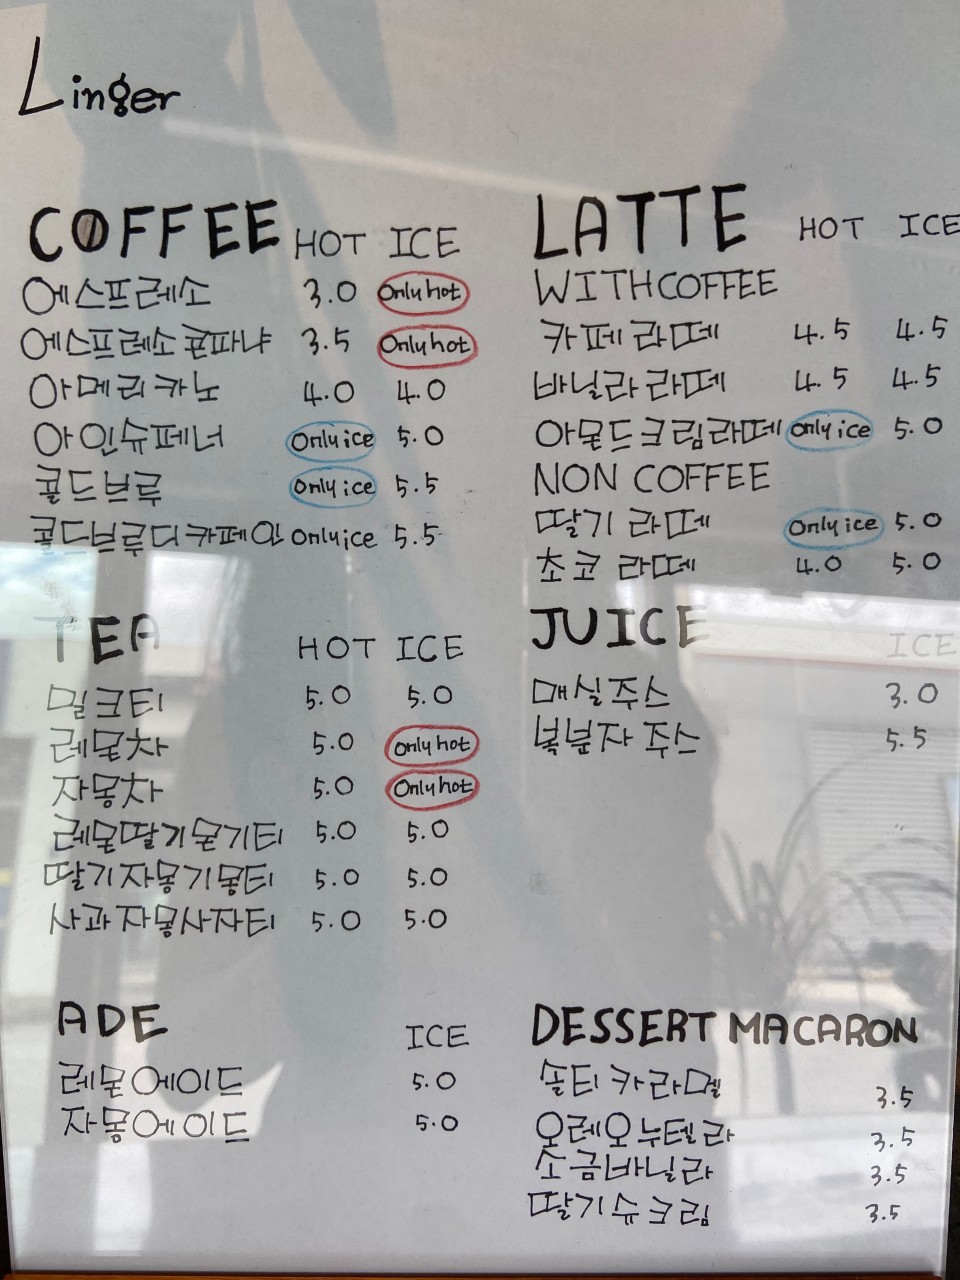 Linger
COFFEE HOT ICE
에스프레소 3.0 Only hot
에스프레소콘파냐 3.5 Only hot
아메리카노 4.0 4.0
아인슈페너 Only ice 5.0
콜드브루 Only ice 5.5
콜드브루디카페인 Only ice 5.5
TEA HOT ICE
밀크티 5.0 5.0
레몬차 5.0 Only hot
자몽차 5.0 Only hot
레몬딸기몬기티 5.0 5.0
딸기자몽기몽티 5.0 5.0
사과자몽사자티 5.0 5.0
ADE ICE
레몬에이드 5.0
자몽에이드 5.0
LATTE HOT ICE
WITH COFFEE
카페라떼 4.5 4.5
바닐라라떼 4.5 4.5
아몬드크림라떼 Only ice 5.0
NON COFFEE
딸기라떼 Only ice 5.0
초코라떼 4.0 5.0
JUICE ICE
매실주스 3.0
복분자주스 5.5
DESSERT MACARON
솔티카라멜 3.5
오레오누텔라 3.5
소금바닐라 3.5
딸기슈크림 3.5